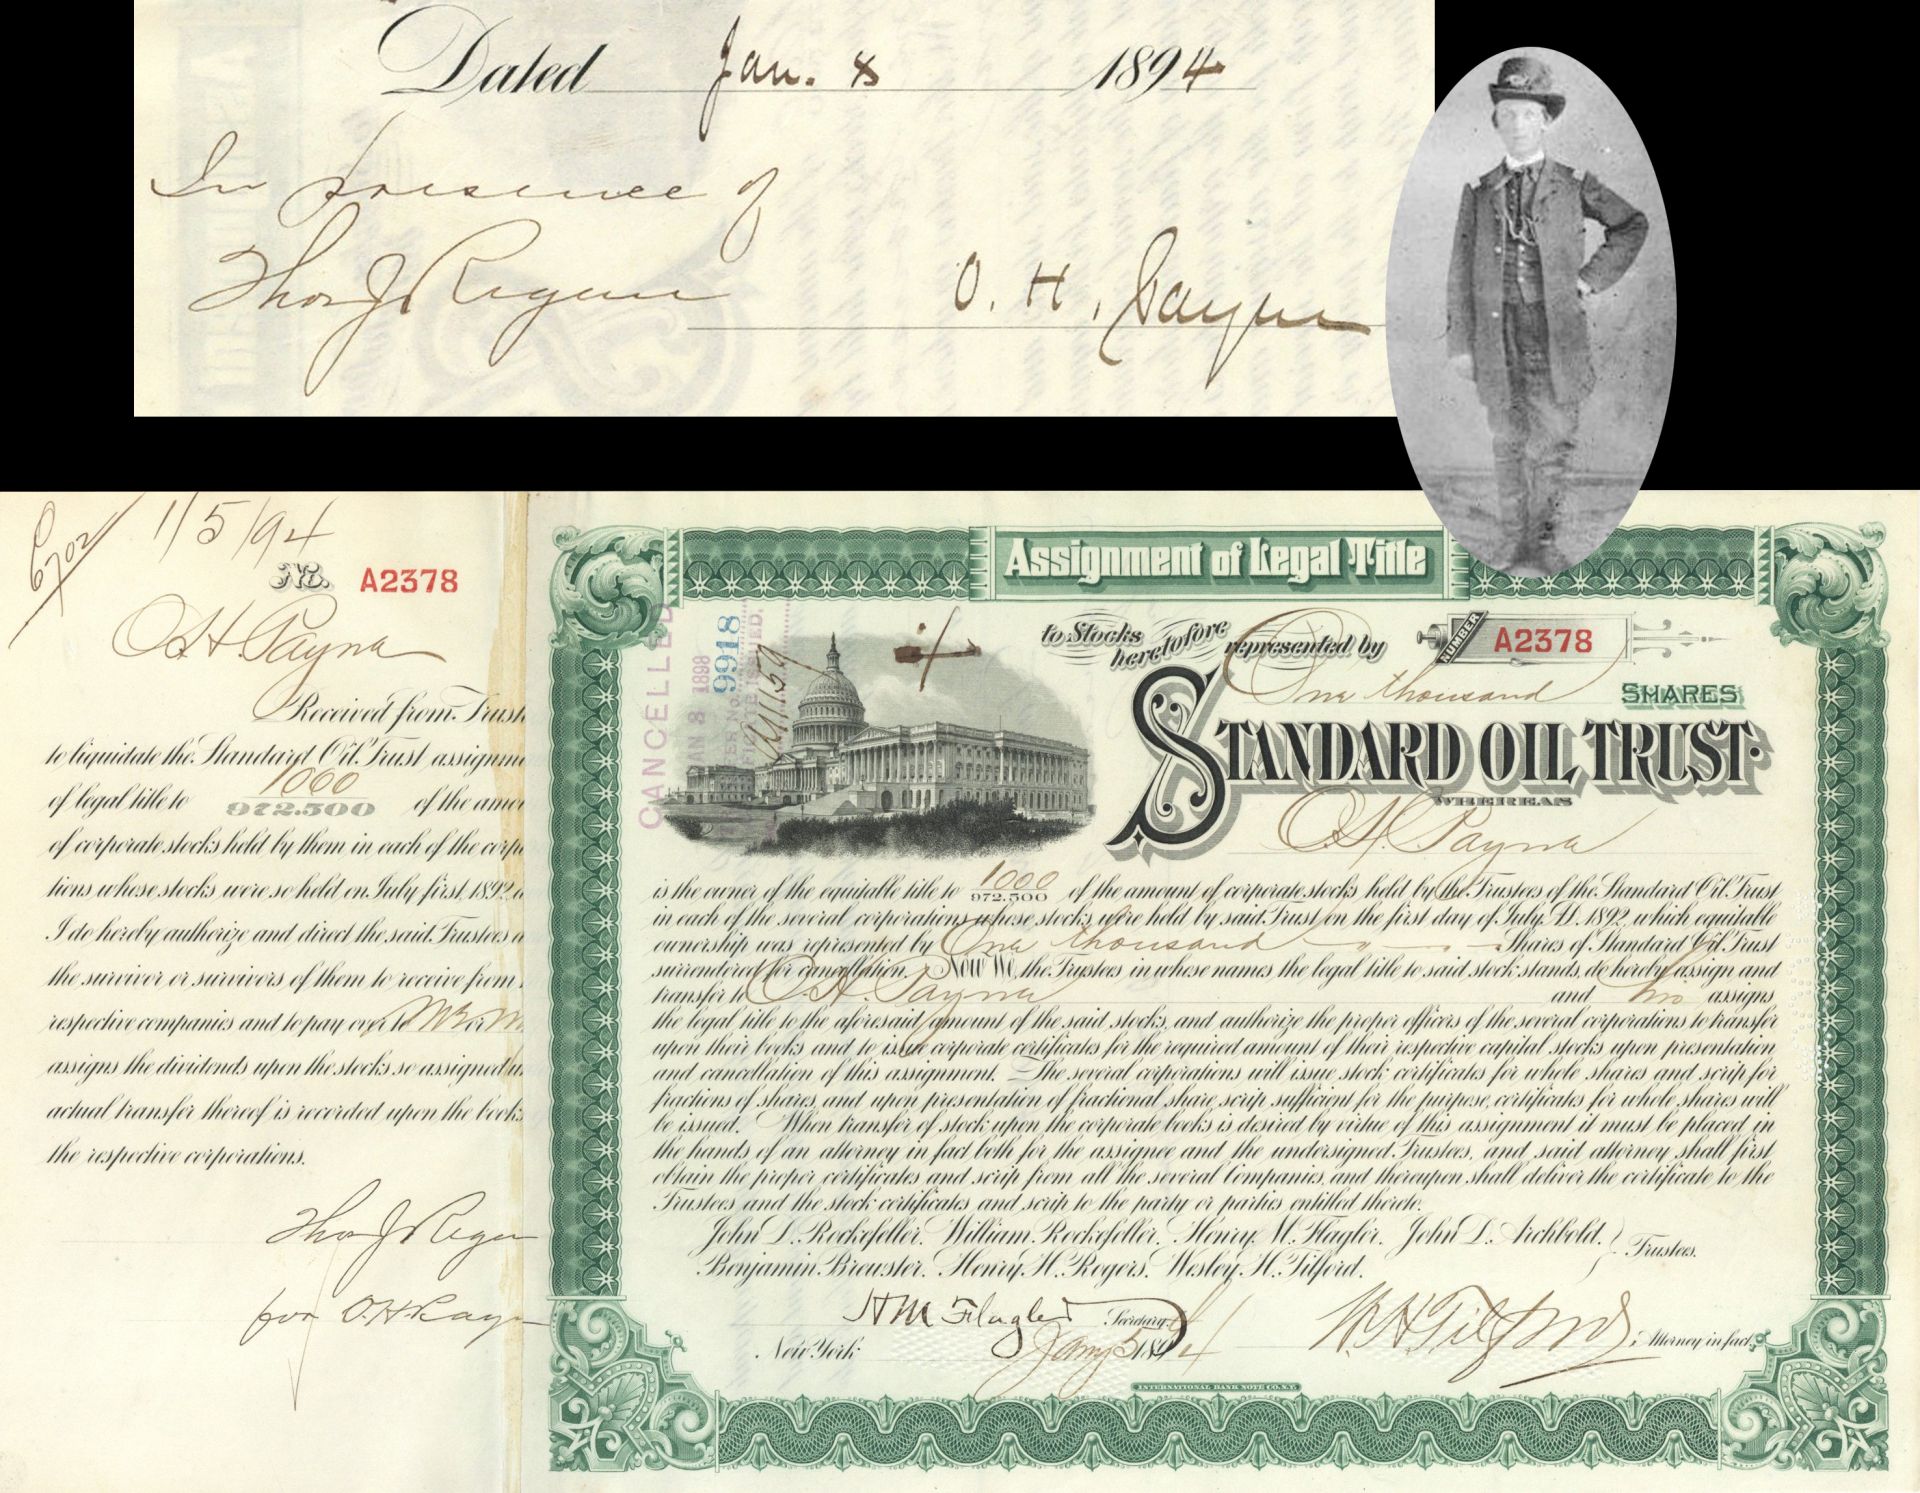 Dated Jan. 8 1894
In presence of
Thos J Regan
O. H. Payne
1/5/94
No. A2378
O H. Payne
Received from Trust
to liquidate the Standard Oil Trust assignme
of legal title to 1000/972.500 of the amou
of corporate stocks held by them in each of the corpo
tions whose stocks were so held on July first, 1892, a
I do hereby authorize and direct the said Trustees a
the survivor or survivors of them to receive from
respective companies and to pay over to me or m
assigns the dividends upon the stocks so assigned un
actual transfer thereof is recorded upon the books
the respective corporations.
Thos J Regan
for O. H. Payn
Assignment of Legal Title
to Stocks heretofore represented by
NUMBER A2378
One thousand SHARES
STANDARD OIL TRUST.
WHEREAS
O. H. Payne
CANCELLED
JAN 8 1898
9918
A11159
is the owner of the equitable title to 1000/972.500 of the amount of corporate stocks held by the Trustees of the Standard Oil Trust
in each of the several corporations whose stocks were held by said Trust on the first day of July, A. 1892, which equitable
ownership was represented by One thousand Shares of Standard Oil Trust
surrendered for cancellation. Now We, the Trustees in whose names the legal title to said stock stands, do hereby assign and
transfer to O. H. Payne and his assigns
the legal title to the aforesaid amount of the said stocks, and authorize the proper officers of the several corporations to transfer
upon their books and to issue corporate certificates for the required amount of their respective capital stocks upon presentation
and cancellation of this assignment. The several corporations will issue stock certificates for whole shares and scrip for
fractions of shares, and upon presentation of fractional share scrip sufficient for the purpose, certificates for whole shares will
be issued. When transfer of stock upon the corporate books is desired by virtue of this assignment it must be placed in
the hands of an attorney in fact both for the assignee and the undersigned Trustees, and said attorney shall first
obtain the proper certificates and scrip from all the several Companies, and thereupon shall deliver the certificate to the
Trustees and the stock certificates and scrip to the party or parties entitled thereto.
John D. Rockefeller. William Rockefeller. Henry M. Flagler. John D. Archbold.
Benjamin Brewster. Henry H. Rogers. Wesley H. Tilford. Trustees.
H M Flagler Secretary.
W. H. Tilford Attorney in fact.
New York Jany 5 1894
INTERNATIONAL BANK NOTE CO. N.Y.